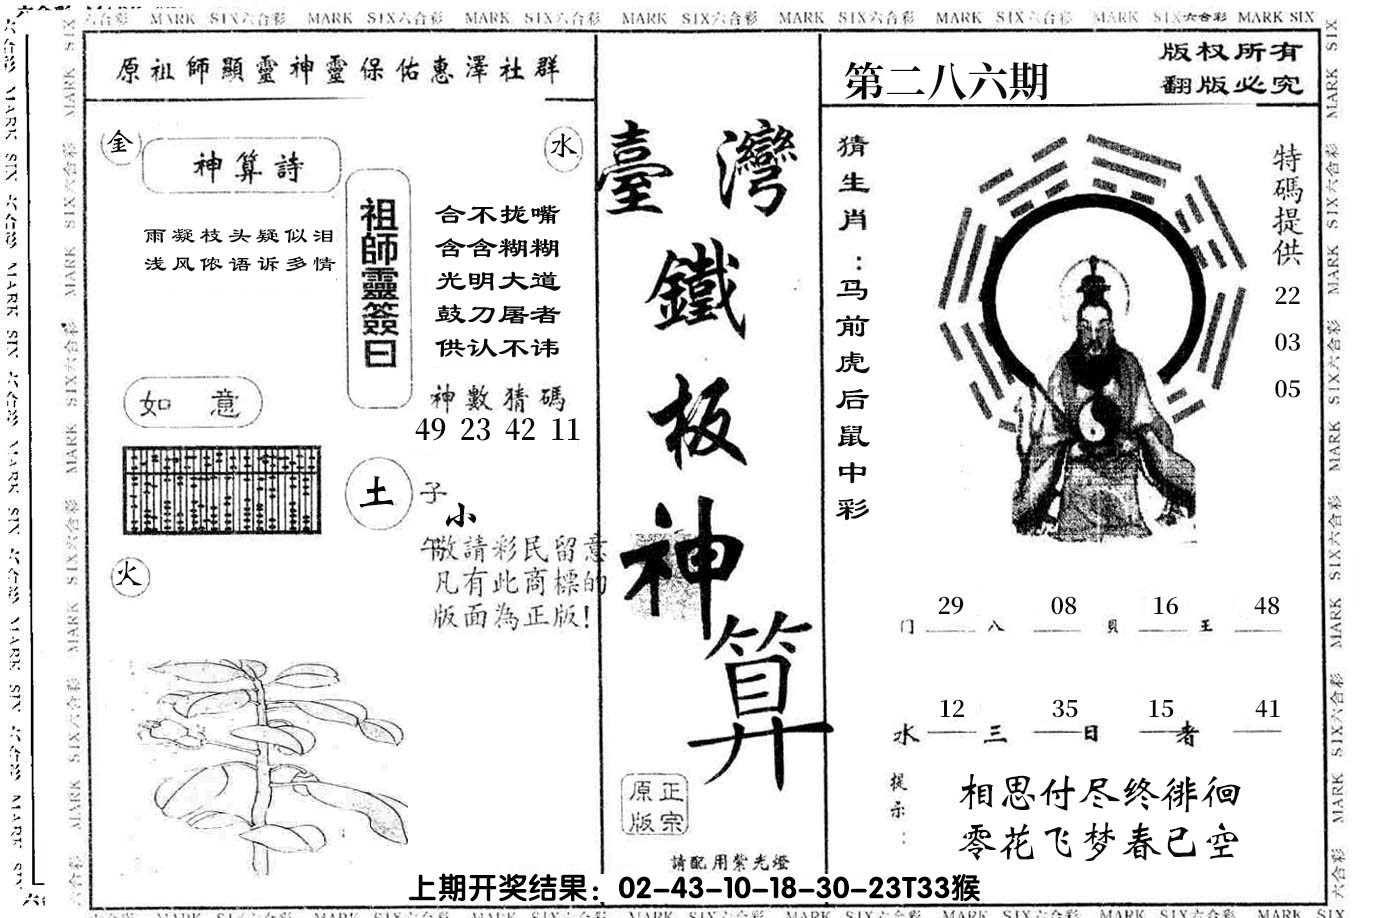 MARK SIX六合彩 MARK SIX六合彩 MARK SIX六合彩 MARK SIX六合彩 MARK SIX六合彩 MARK SIX六合彩 MARK SIX六合彩 MARK SIX
原祖師顯靈神靈保佑惠澤社群
金
水
神算詩
雨凝枝头疑似泪
浅风侬语诉多情
祖師靈簽曰
合不拢嘴
含含糊糊
光明大道
鼓刀屠者
供认不讳
神數猜碼
49 23 42 11
如 意
土
子
小
午
敬請彩民留意
凡有此商標的
版面為正版!
火
臺灣
鐵
板
神
算
原正
版宗
請配用紫光燈
第二八六期
版权所有
翻版必究
猜生肖:马前虎后鼠中彩
特碼提供
22
03
05
29 08 16 48
门 八 貝 王
12 35 15 41
水 三 日 者
提示:
相思付尽终徘徊
零花飞梦春已空
上期开奖结果：02-43-10-18-30-23T33猴